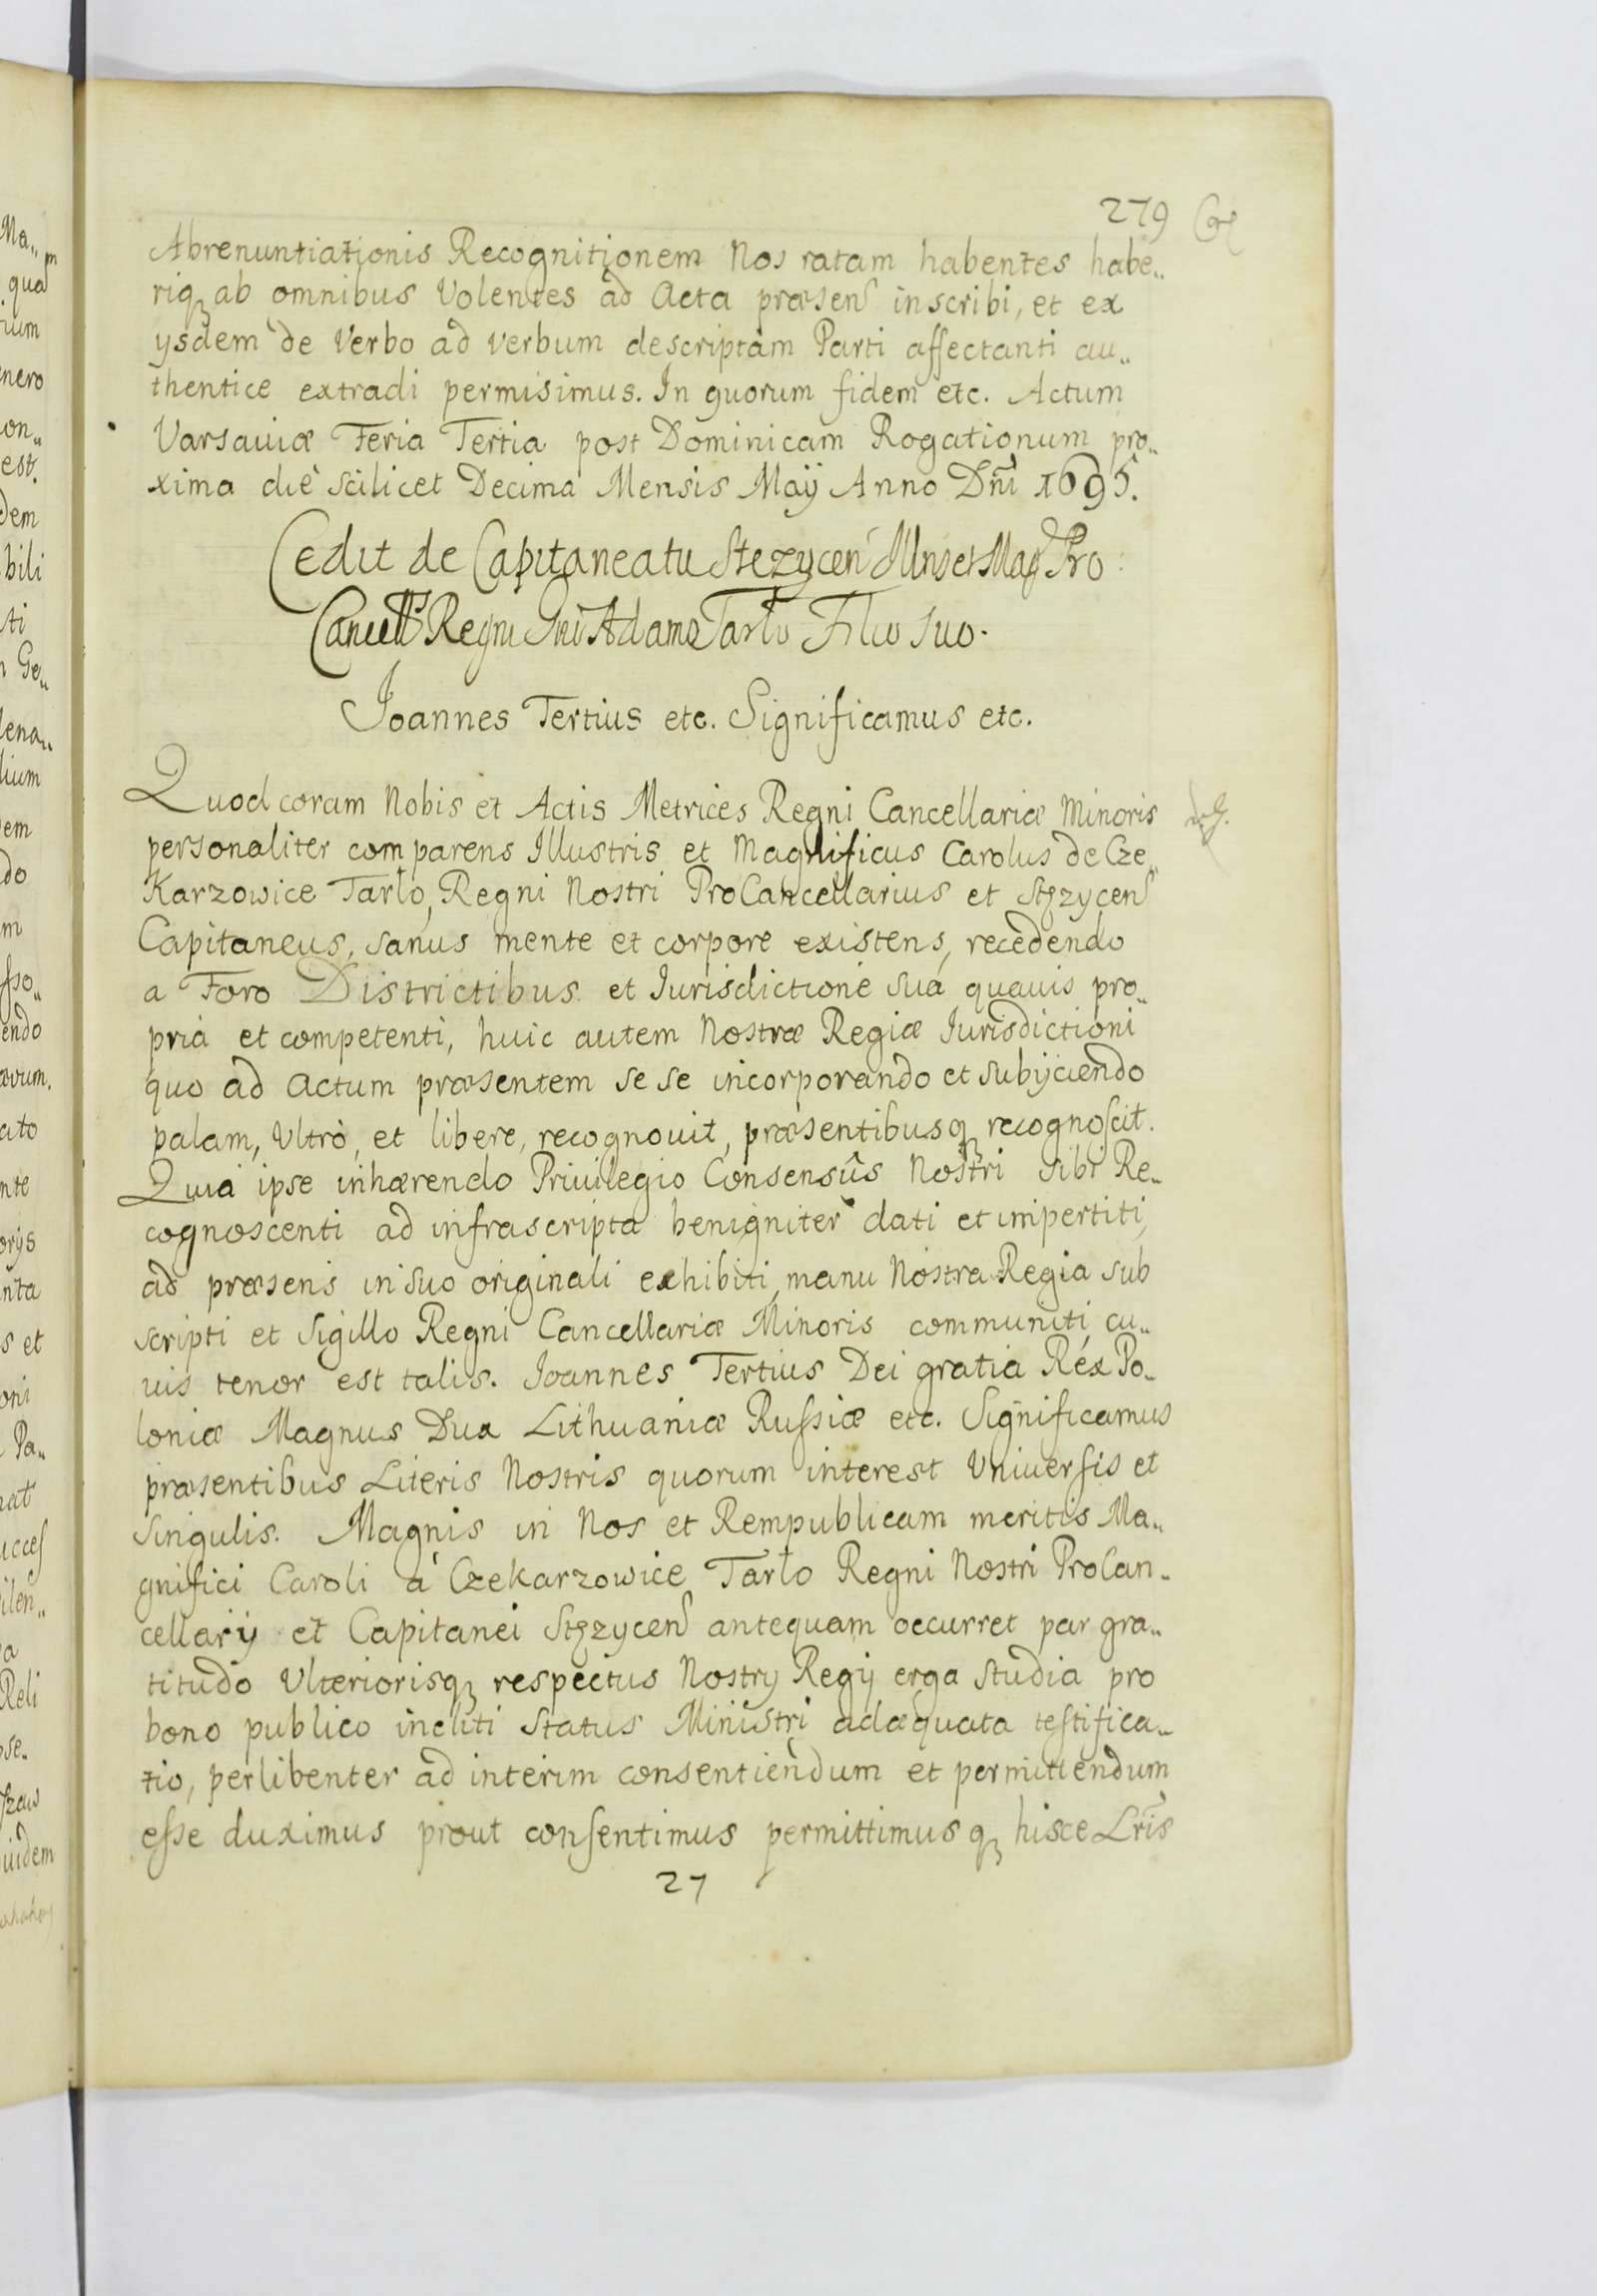 279
Abrenuntiationis Recognitionem Nos ratam habentes habe„
riq₃ ab omnibus Volentes ad Acta præsen inscribi, et ex
ysdem de Verbo ad verbum descriptam Parti affectanti au„
thentice extradi permisimus. In quorum fidem etc. Actum
Varsaviæ Feria Tertia post Dominicam Rogationum pro„
xima die scilicet Decima Mensis Maÿ Anno Dñi 1695.
Cedit de Capitaneatu Stezycen Illris et Mag Pro:
Cancell Regni Adamo Tarło Filio suo.
Joannes Tertius etc. Significamus etc.
Quod coram Nobis et Actis Metrices Regni Cancellariæ Minoris
personaliter comparens Illustris et Magnificus Carolus de Cze„
Karzowice Tarło, Regni Nostri ProCancellarius et Stęzycen
Capitaneus, sanus mente et corpore existens, recedendo
a Foro Districtibus et Iurisdictione sua quavis pro„
pria et competenti, huic autem Nostræ Regiæ Iurisdictioni
quo ad Actum præsentem se se incorporando et subijciendo
palam, Ultrò, et libere, recognouit, præsentibusq₃ recognoscit.
Quia ipse inhærendo Priuilegio Consensûs Nostri sibi Re„
cognoscenti ad infrascripta benigniter dati et impertiti,
ad præsens in suo originali exhibiti, manu Nostra Regia sub
scripti et Sigillo Regni Cancellariæ Minoris communiti, cu„
ius tenor est talis. Joannes Tertius Dei gratia Rex Po„
loniæ Magnus Dux Lithuaniæ Russiæ etc. Significamus
præsentibus Literis Nostris quorum interest Vniuersis et
Singulis. Magnis in Nos et Rempublicam meritis Ma„
gnifici Caroli à Czekarzowice Tarło Regni Nostri ProCan„
cellarÿ et Capitanei Stęzycen antequam occurret par gra„
titudo Ulteriorisq₃ respectus Nostry Regÿ erga studia pro
bono publico incliti Status Ministri adæquata testifica„
tio, perlibenter ad interim consentiendum et permittendum
esse duximus prout consentimus permittimusq₃ hisce Lris
27